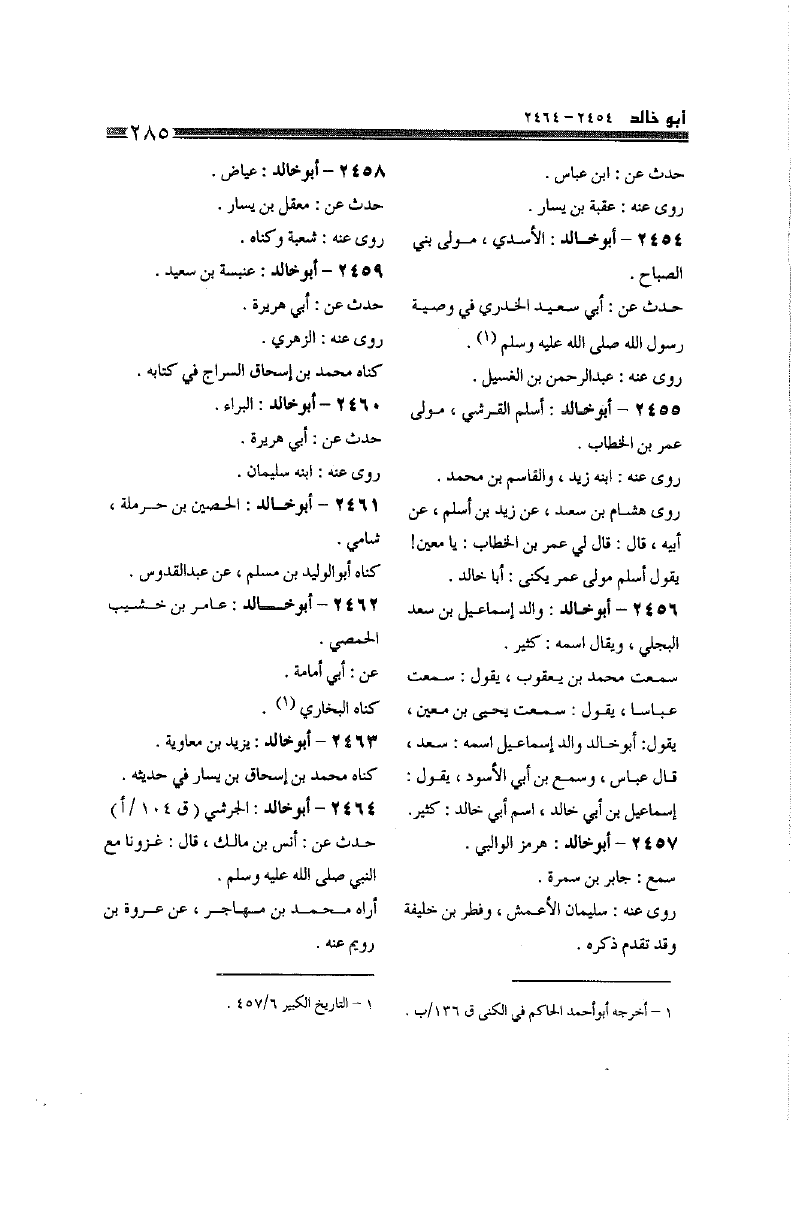 أبو خالد ٢٤٥٤-٢٤٦٤
٢٨٥
حدث عن : ابن عباس .
روى عنه : عقبة بن يسار .
٢٤٥٤ - أبوخـالد : الأسـدي ، مـولى بني
الصباح .
حـدث عن : أبي سعـيـد الخدري في وصيـة
رسول الله صلى الله عليه وسلم (١) .
روى عنه : عبدالرحمن بن الغسيل .
٢٤٥٥ - أبوخـالد : أسلم القـرشي ، مـولى
عمر بن الخطاب .
روى عنه : ابنه زيد ، والقاسم بن محمد .
روى هشـام بن سعـد ، عن زيد بن أسلم ، عن
أبيه ، قال : قال لي عمر بن الخطاب : يا معين!
يقول أسلم مولى عمر يكنى : أبا خالد .
٢٤٥٦ - أبوخـالد : والد إسماعـيل بن سعد
البجلي ، ويقال اسمه : كثير .
سـمعت محمد بن يـعقوب ، يقول : سـمعت
عبـاسـا ، يقـول : سـمعت يحيى بن مـعين ،
يقول: أبوخـالد والد إسماعـيل اسمه : سعد ،
قـال عباس ، وسـمع بن أبي الأسود ، يقـول :
إسماعيل بن أبي خالد ، اسم أبي خالد : كثير.
٢٤٥٧ - أبوخالد : هرمز الوالبي .
سمع : جابر بن سمرة .
روى عنه : سليمان الأعـمش ، وفطر بن خليفة
وقد تقدم ذكره .
١ - أخرجه أبوأحمد الحاكم في الكنى ق ١٣٦/ب .
٢٤٥٨ - أبوخالد : عياض .
حدث عن : معقل بن يسار .
روى عنه : شعبة وكناه .
٢٤٥٩ - أبوخالد : عنبسة بن سعيد .
حدث عن : أبي هريرة .
روى عنه : الزهري .
كناه محمد بن إسحاق السراج في كتابه .
٢٤٦٠ - أبوخالد : البراء .
حدث عن : أبي هريرة .
روى عنه : ابنه سليمان .
٢٤٦١ - أبوخـالد : الحـصين بن حـرملة ،
شامي .
كناه أبوالوليد بن مسلم ، عن عبدالقدوس .
٢٤٦٢ - أبوخـــالد : عـامر بن خـشـيب
الحمصي .
عن : أبي أمامة .
كناه البخاري (١) .
٢٤٦٣ - أبوخالد : يزيد بن معاوية .
كناه محمد بن إسحاق بن يسار في حديثه .
٢٤٦٤ - أبوخالد : الجرشي ( ق ١٠٤ /أ )
حـدث عن : أنس بن مالـك ، قال : غـزونا مع
النبي صلى الله عليه وسلم .
أراه مـحـمـد بن مـهـاجـر ، عن عـروة بن
رويم عنه .
١ - التاريخ الكبير ٤٥٧/٦ .